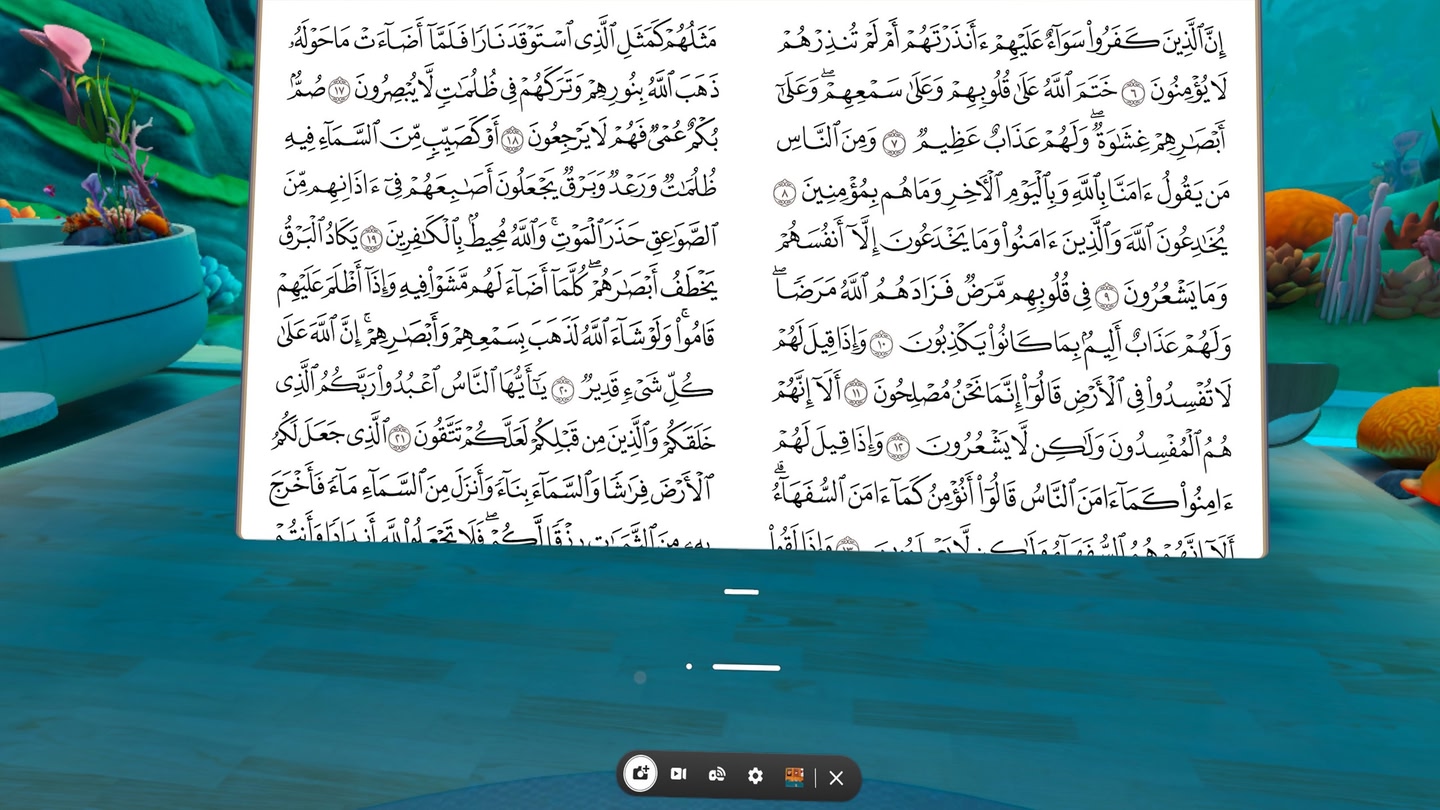 إِنَّ ٱلَّذِينَ كَفَرُواْ سَوَآءٌ عَلَيْهِمْ ءَأَنذَرْتَهُمْ أَمْ لَمْ تُنذِرْهُمْ
لَا يُؤْمِنُونَ ٦ خَتَمَ ٱللَّهُ عَلَىٰ قُلُوبِهِمْ وَعَلَىٰ سَمْعِهِمْۖ وَعَلَىٰٓ
أَبْصَٰرِهِمْ غِشَٰوَةٌۖ وَلَهُمْ عَذَابٌ عَظِيمٌ ٧ وَمِنَ ٱلنَّاسِ
مَن يَقُولُ ءَامَنَّا بِٱللَّهِ وَبِٱلْيَوْمِ ٱلْأٓخِرِ وَمَا هُم بِمُؤْمِنِينَ ٨
يُخَٰدِعُونَ ٱللَّهَ وَٱلَّذِينَ ءَامَنُواْ وَمَا يَخْدَعُونَ إِلَّآ أَنفُسَهُمْ
وَمَا يَشْعُرُونَ ٩ فِى قُلُوبِهِم مَّرَضٌ فَزَادَهُمُ ٱللَّهُ مَرَضًاۖ
وَلَهُمْ عَذَابٌ أَلِيمٌۢ بِمَا كَانُواْ يَكْذِبُونَ ١٠ وَإِذَا قِيلَ لَهُمْ
لَا تُفْسِدُواْ فِى ٱلْأَرْضِ قَالُوٓاْ إِنَّمَا نَحْنُ مُصْلِحُونَ ١١ أَلَآ إِنَّهُمْ
هُمُ ٱلْمُفْسِدُونَ وَلَٰكِن لَّا يَشْعُرُونَ ١٢ وَإِذَا قِيلَ لَهُمْ
ءَامِنُواْ كَمَآ ءَامَنَ ٱلنَّاسُ قَالُوٓاْ أَنُؤْمِنُ كَمَآ ءَامَنَ ٱلسُّفَهَآءُۗ
أَلَآ إِنَّهُمْ هُمُ ٱلسُّفَهَآءُ وَلَٰكِن لَّا يَعْلَمُونَ ١٣ وَإِذَا لَقُواْ
مَثَلُهُمْ كَمَثَلِ ٱلَّذِى ٱسْتَوْقَدَ نَارًا فَلَمَّآ أَضَآءَتْ مَا حَوْلَهُۥ
ذَهَبَ ٱللَّهُ بِنُورِهِمْ وَتَرَكَهُمْ فِى ظُلُمَٰتٍ لَّا يُبْصِرُونَ ١٧ صُمٌّۢ
بُكْمٌ عُمْىٌ فَهُمْ لَا يَرْجِعُونَ ١٨ أَوْ كَصَيِّبٍ مِّنَ ٱلسَّمَآءِ فِيهِ
ظُلُمَٰتٌ وَرَعْدٌ وَبَرْقٌ يَجْعَلُونَ أَصَٰبِعَهُمْ فِىٓ ءَاذَانِهِم مِّنَ
ٱلصَّوَٰعِقِ حَذَرَ ٱلْمَوْتِۚ وَٱللَّهُ مُحِيطٌۢ بِٱلْكَٰفِرِينَ ١٩ يَكَادُ ٱلْبَرْقُ
يَخْطَفُ أَبْصَٰرَهُمْۖ كُلَّمَآ أَضَآءَ لَهُم مَّشَوْاْ فِيهِ وَإِذَآ أَظْلَمَ عَلَيْهِمْ
قَامُواْۚ وَلَوْ شَآءَ ٱللَّهُ لَذَهَبَ بِسَمْعِهِمْ وَأَبْصَٰرِهِمْۚ إِنَّ ٱللَّهَ عَلَىٰ
كُلِّ شَىْءٍ قَدِيرٌ ٢٠ يَٰٓأَيُّهَا ٱلنَّاسُ ٱعْبُدُواْ رَبَّكُمُ ٱلَّذِى
خَلَقَكُمْ وَٱلَّذِينَ مِن قَبْلِكُمْ لَعَلَّكُمْ تَتَّقُونَ ٢١ ٱلَّذِى جَعَلَ لَكُمُ
ٱلْأَرْضَ فِرَٰشًا وَٱلسَّمَآءَ بِنَآءً وَأَنزَلَ مِنَ ٱلسَّمَآءِ مَآءً فَأَخْرَجَ
بِهِۦ مِنَ ٱلثَّمَرَٰتِ رِزْقًا لَّكُمْۖ فَلَا تَجْعَلُواْ لِلَّهِ أَندَادًا وَأَنتُمْ